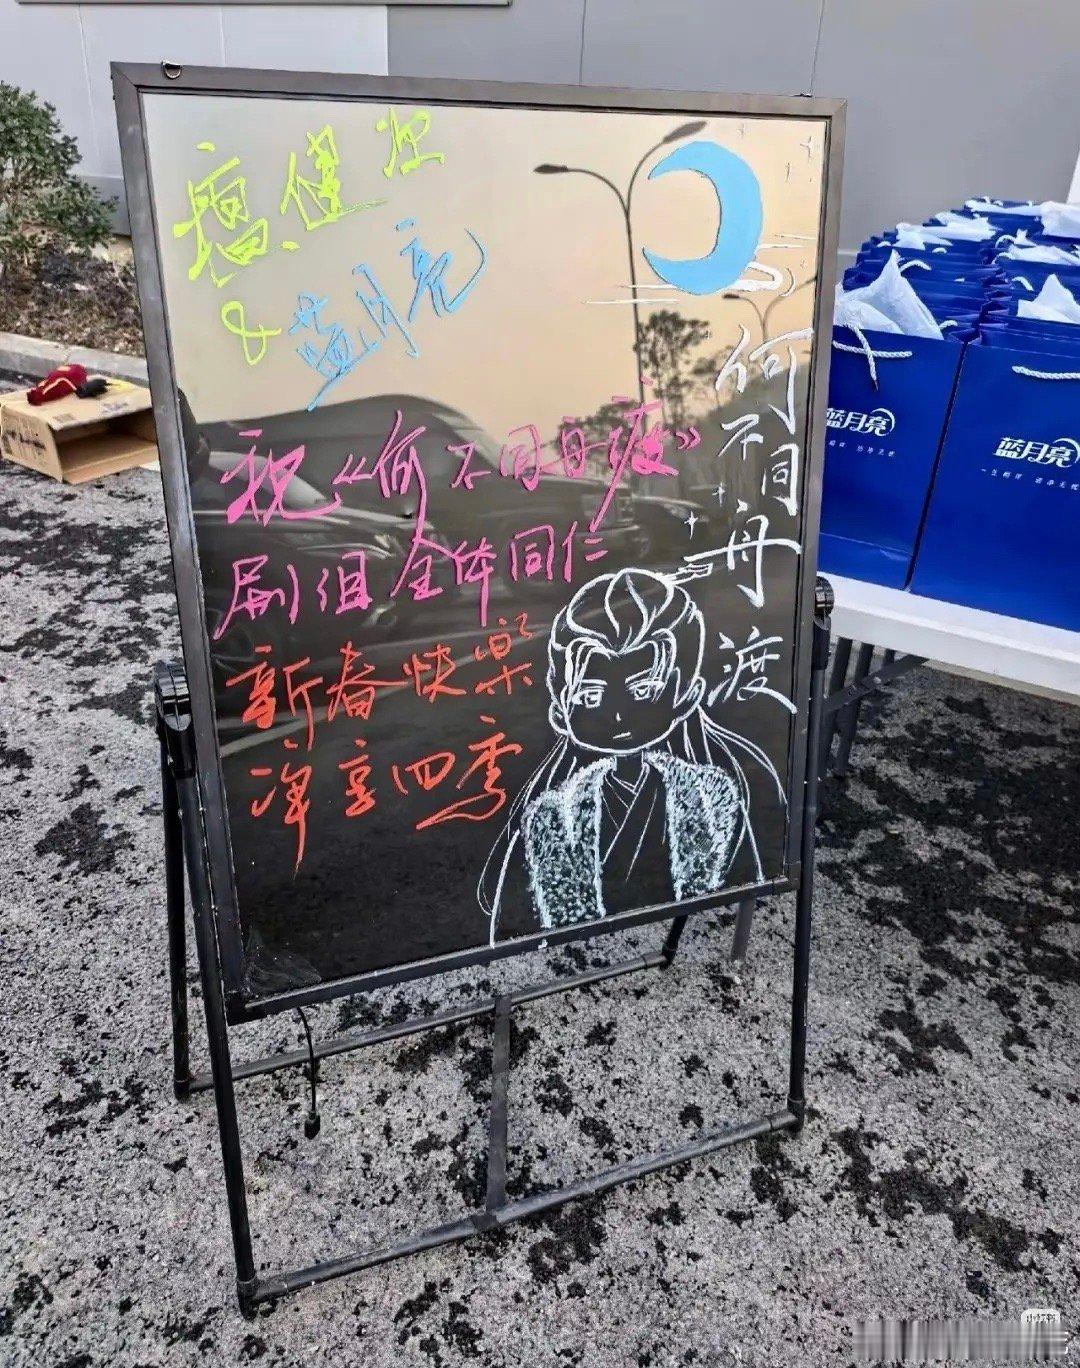 檀健次
& 蓝月亮
祝《何不同舟渡》
剧组全体同仁
新春快乐
净享四季
何不同舟渡
蓝月亮
蓝月亮
小红书